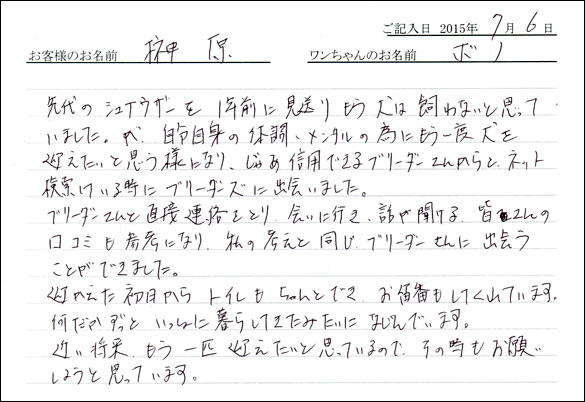 ご記入日 2015年 7月 6日
お客様のお名前 榊原 ワンちゃんのお名前 ボノ
先代のシュナウザーを 1年前に見送り もう犬は飼わないと思って
いました。が、自分自身の体調、メンタルの為にもう一度犬を
迎えたいと思う様になり、じゃあ信用できるブリーダーさんからと、ネット
検索している時にブリーダーズに出会いました。
ブリーダーさんと直接連絡をとり、会いに行き、話が聞ける、皆さんの
口コミも参考になり、私の考えと同じ、ブリーダーさんに出会う
ことができました。
迎かえた初日から トイレも ちゃんとでき、お留番もしてくれています。
何だかずっと いっしょに暮らしてきたみたいになじんでいます。
近い将来、もう一匹 迎えたいと思っているので、その時もお願い
しようと思っています。